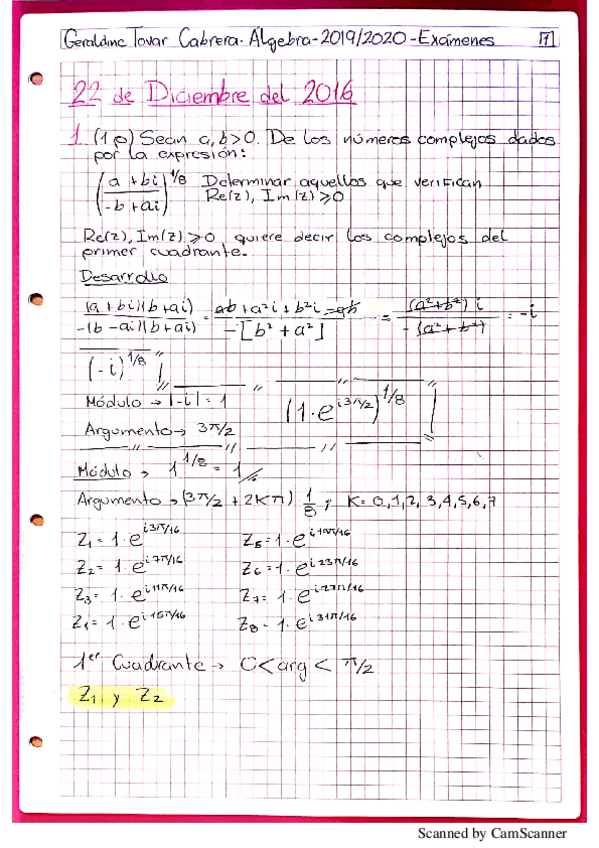 Geraldine Tovar Cabrera. Álgebra-2019/2020-Exámenes 7
22 de Diciembre del 2016
1. (1p) Sean a,b>0. De los números complejos dados
por la expresión:
((a+bi)/(-b+ai))^1/8 Determinar aquellos que verifican
Re(z), Im(z)≥0
Re(z), Im(z)≥0 quiere decir los complejos del
primer cuadrante.
Desarrollo
(a+bi)(b+ai)/-(b-ai)(b+ai) = ab+a²i+b²i-ab/-[b²+a²] = (a²+b²)i/-(a²+b²) = -i
(-i)^1/8
Módulo → |-i| = 1
(1·e^i3π/2)^1/8
Argumento → 3π/2
Módulo → 1^1/8 = 1
Argumento → (3π/2 + 2Kπ) · 1/8 ; K=0,1,2,3,4,5,6,7
Z₁ = 1·e^i3π/16 Z₅ = 1·e^i19π/16
Z₂ = 1·e^i7π/16 Z₆ = 1·e^i23π/16
Z₃ = 1·e^i11π/16 Z₇ = 1·e^i27π/16
Z₄ = 1·e^i15π/16 Z₈ = 1·e^i31π/16
1er Cuadrante → 0<arg<π/2
Z₁ y Z₂
Scanned by CamScanner